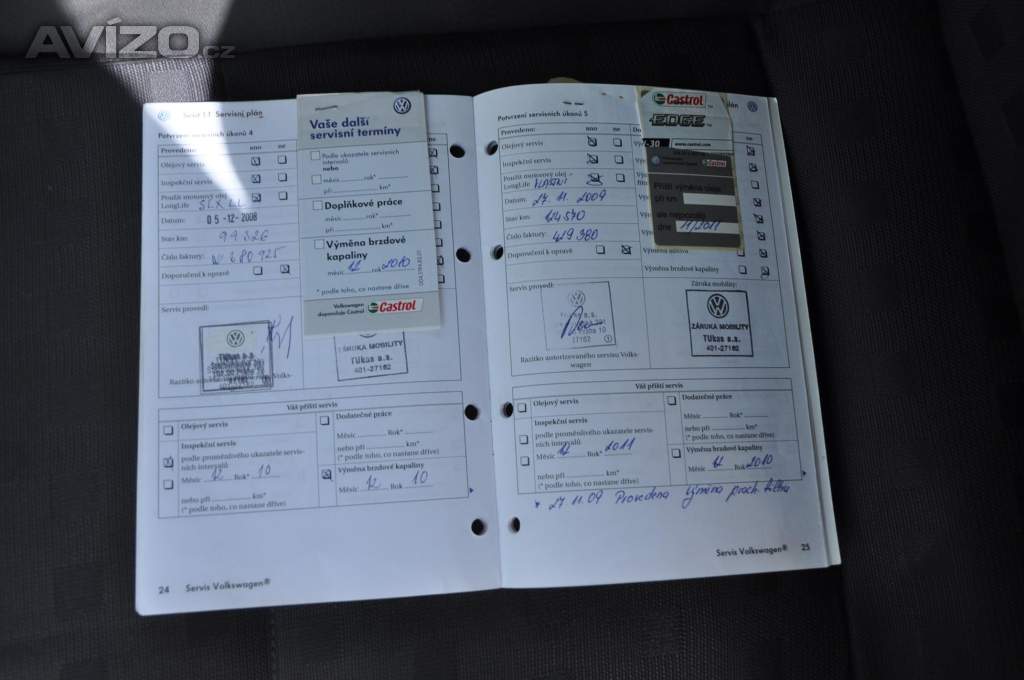 AVÍZO.cz
Sešit 1.1 Servisní plán
Potvrzení servisních úkonů 4
Provedeno: ano ne
Olejový servis
Inspekční servis
Použit motorový olej –
LongLife
Datum: 05-12-2008
Stav km: 99326
Číslo faktury: 680925
Doporučení k opravě
Servis provedl:
TUkas a.s.
Razítko
ZÁRUKA MOBILITY
TUkas a.s.
401-27162
Vaše další
servisní termíny
Podle ukazatele servisních
intervalů
nebo
měsíc rok*
při km*
Doplňkové práce
měsíc rok*
při km*
Výměna brzdové
kapaliny
měsíc 12 rok 2010
* podle toho, co nastane dříve
Volkswagen
doporučuje Castrol
Castrol
Váš příští servis
Olejový servis
Inspekční servis
podle proměnlivého ukazatele servis-
ních intervalů
Měsíc 12 Rok* 10
nebo při km*
(* podle toho, co nastane dříve)
Dodatečné práce
Měsíc Rok*
nebo při km*
(* podle toho, co nastane dříve)
Výměna brzdové kapaliny
Měsíc 12 Rok 10
24 Servis Volkswagen®
plán
Potvrzení servisních úkonů 5
Provedeno: ano ne
ne
Olejový servis
Inspekční servis
Použit motorový olej –
LongLife VLASTNÍ
Datum: 27.11.2009
Stav km: 124570
Číslo faktury: 429380
Doporučení k opravě
Výměna brzdové kapaliny
Castrol
EDGE
-30 www.castrol.com
Castrol
Příští výměna oleje
při km
ale nejpozději
dne 11/2011
Servis provedl:
27162
Razítko autorizovaného servisu Volks-
wagen
Záruka mobility:
ZÁRUKA MOBILITY
TUkas a.s.
401-27162
Váš příští servis
Olejový servis
Inspekční servis
podle proměnlivého ukazatele servis-
ních intervalů
Měsíc 12 Rok* 2011
nebo při km*
(* podle toho, co nastane dříve)
Dodatečné práce
Měsíc Rok*
nebo při km*
(* podle toho, co nastane dříve)
Výměna brzdové kapaliny
Měsíc 12 Rok 2010
* 27.11.09 Provedena výměna prach. filtru
Servis Volkswagen® 25